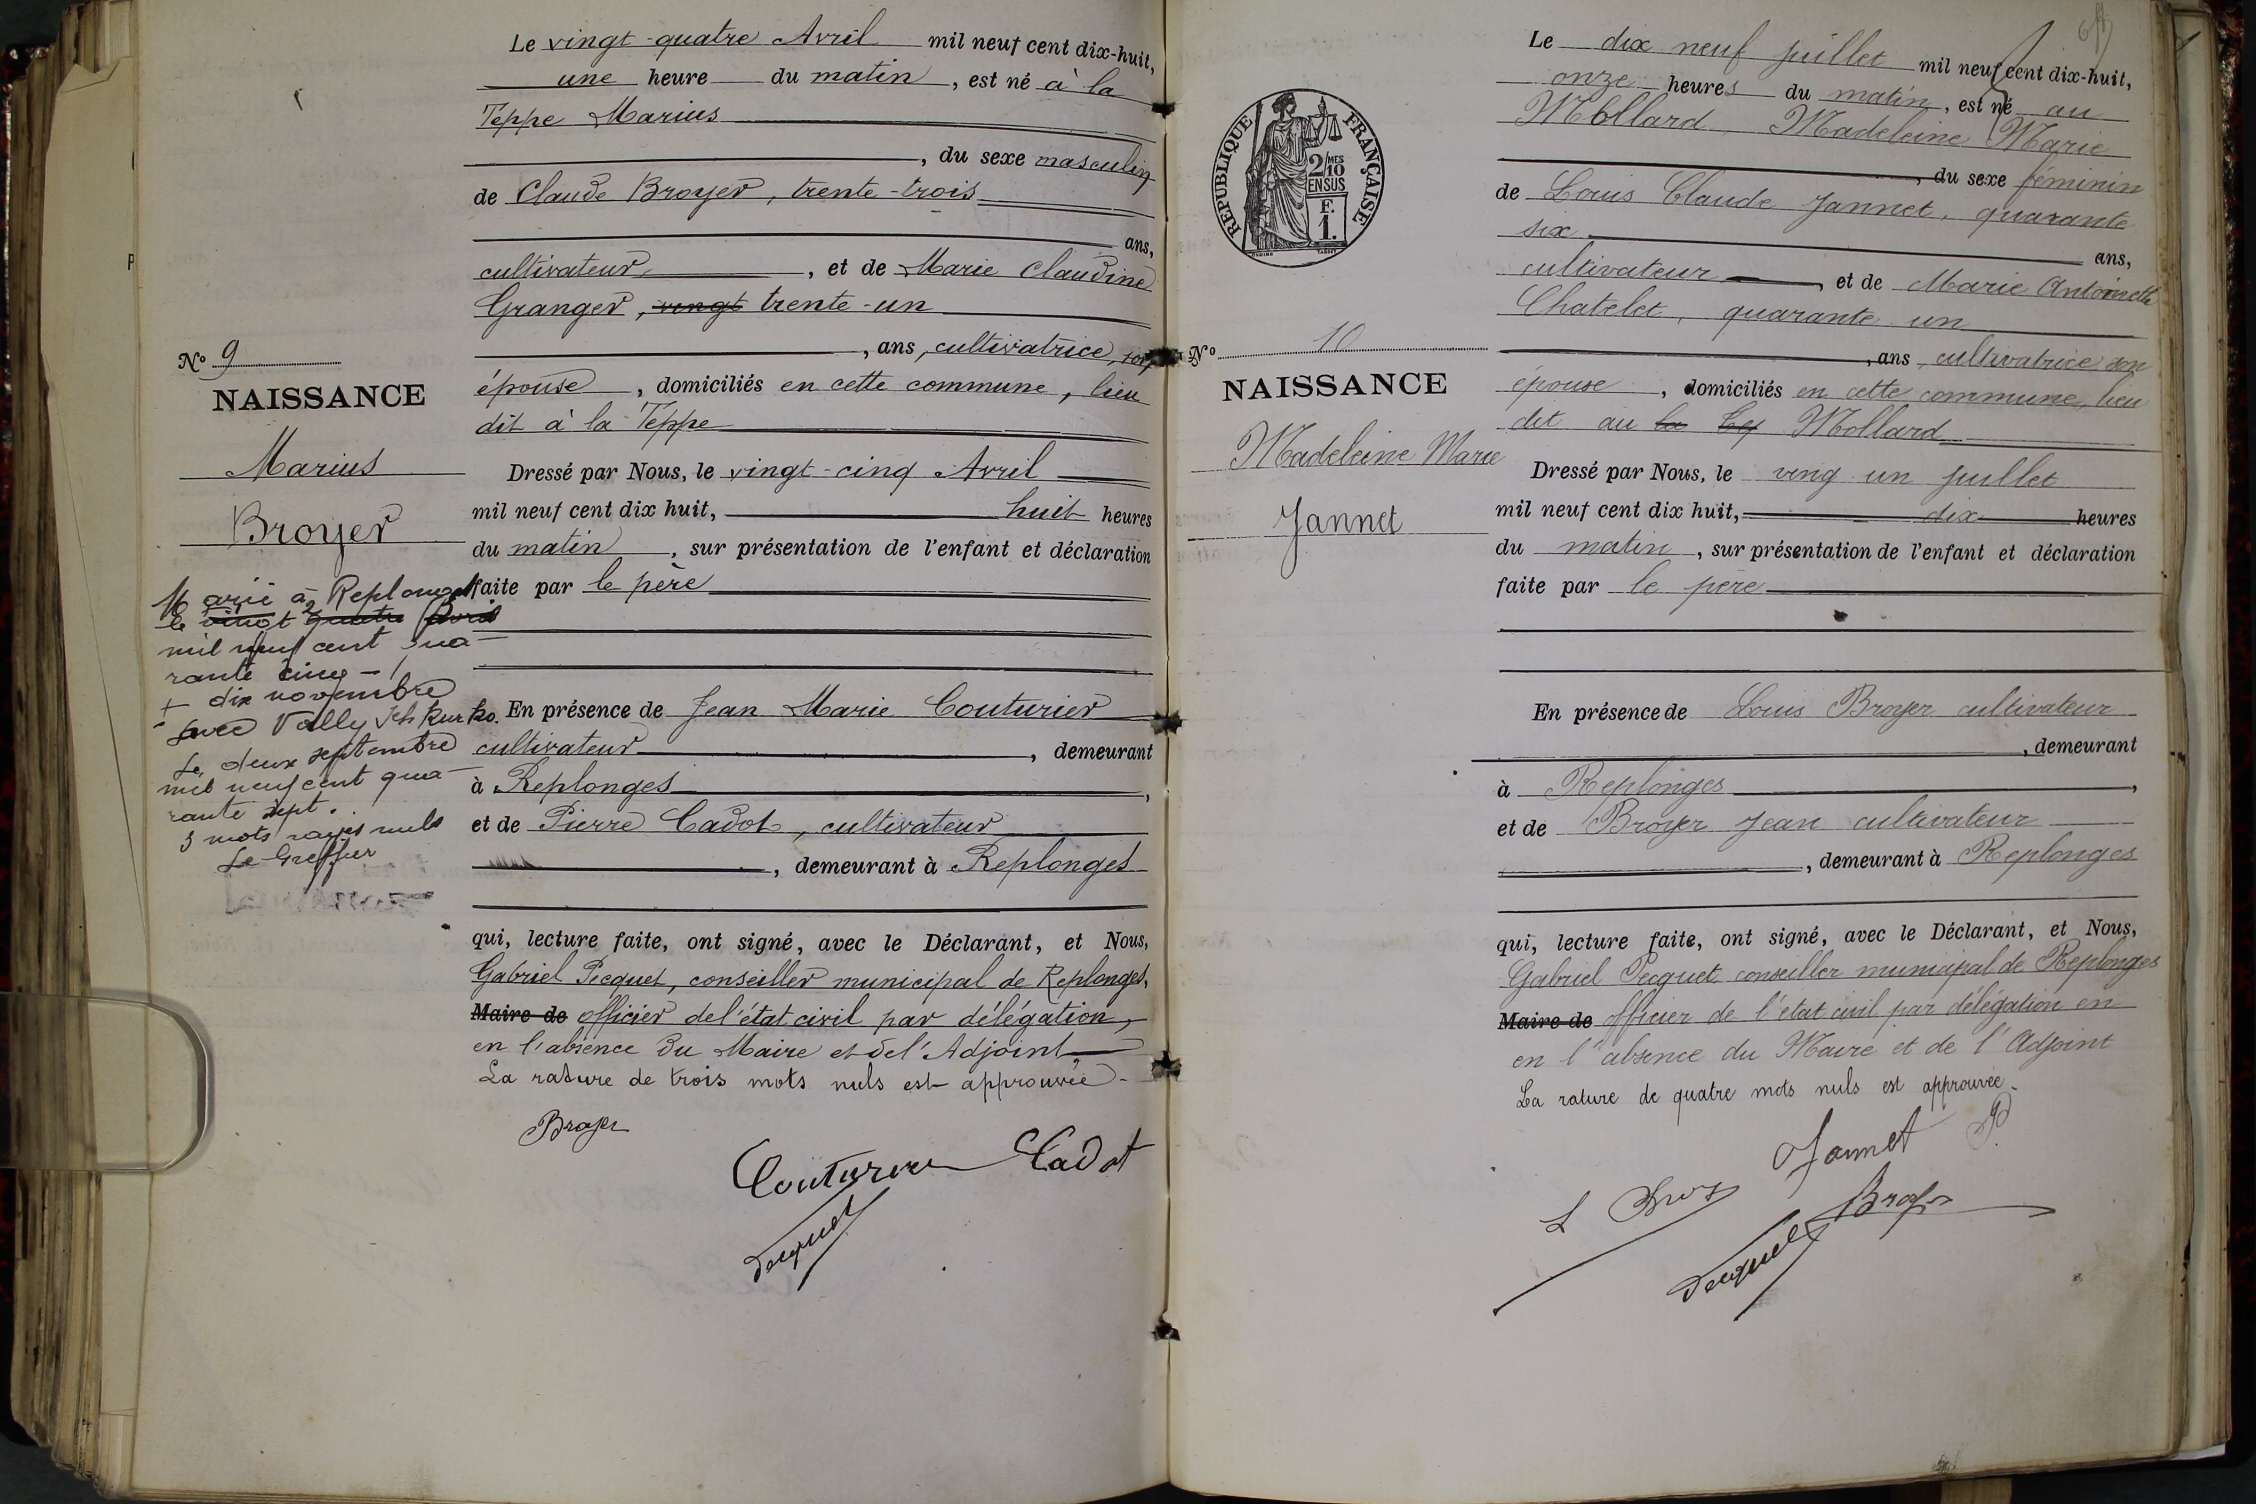 Le vingt-quatre Avril mil neuf cent dix-huit,
une heure du matin, est né à la
Teppe Marius
, du sexe masculin
de Claude Broyer, trente-trois
ans,
cultivateur, et de Marie Claudine
Granger, vingt trente-un
, ans, cultivatrice, son
épouse, domiciliés en cette commune, lieu
dit à la Teppe
Dressé par Nous, le vingt-cinq Avril
mil neuf cent dix huit, huit heures
du matin, sur présentation de l'enfant et déclaration
faite par le père
En présence de Jean Marie Couturier
cultivateur, demeurant
à Replonges,
et de Pierre Cadot, cultivateur
, demeurant à Replonges
qui, lecture faite, ont signé, avec le Déclarant, et Nous,
Gabriel Pecquet, conseiller municipal de Replonges,
Maire de officier de l'état civil par délégation,
en l'absence du Maire et de l'Adjoint.
La rature de trois mots nuls est approuvée.
Broyer
Couturier Cadot
Pecquet
No 9
NAISSANCE
Marius
Broyer
Marié à Replonges
le vingt quatre Avril
mil neuf cent qua-
rante cinq -
+ dix novembre
avec Vally
Le deux septembre
mil neuf cent qua-
rante sept.
3 mots rayés nuls
Le Greffier
Le dix neuf juillet mil neuf cent dix-huit,
onze heures du matin, est né au
Mollard, Madeleine Marie
, du sexe féminin
de Louis Claude Jannet, quarante
six
ans,
cultivateur, et de Marie Antoinette
Chatelet, quarante un
, ans, cultivatrice son
épouse, domiciliés en cette commune, lieu
dit au la Mollard
Dressé par Nous, le ving un juillet
mil neuf cent dix huit, dix heures
du matin, sur présentation de l'enfant et déclaration
faite par le père
En présence de Louis Broyer cultivateur
, demeurant
à Replonges,
et de Broyer Jean cultivateur
, demeurant à Replonges
qui, lecture faite, ont signé, avec le Déclarant, et Nous,
Gabriel Pecquet conseiller municipal de Replonges
Maire de officier de l'état civil par délégation en
en l'absence du Maire et de l'Adjoint
La rature de quatre mots nuls est approuvée.
Jannet
L Broyer
Pecquet
RÉPUBLIQUE FRANÇAISE
2/10 MES
EN SUS
F.
1.
No 10
NAISSANCE
Madeleine Marie
Jannet